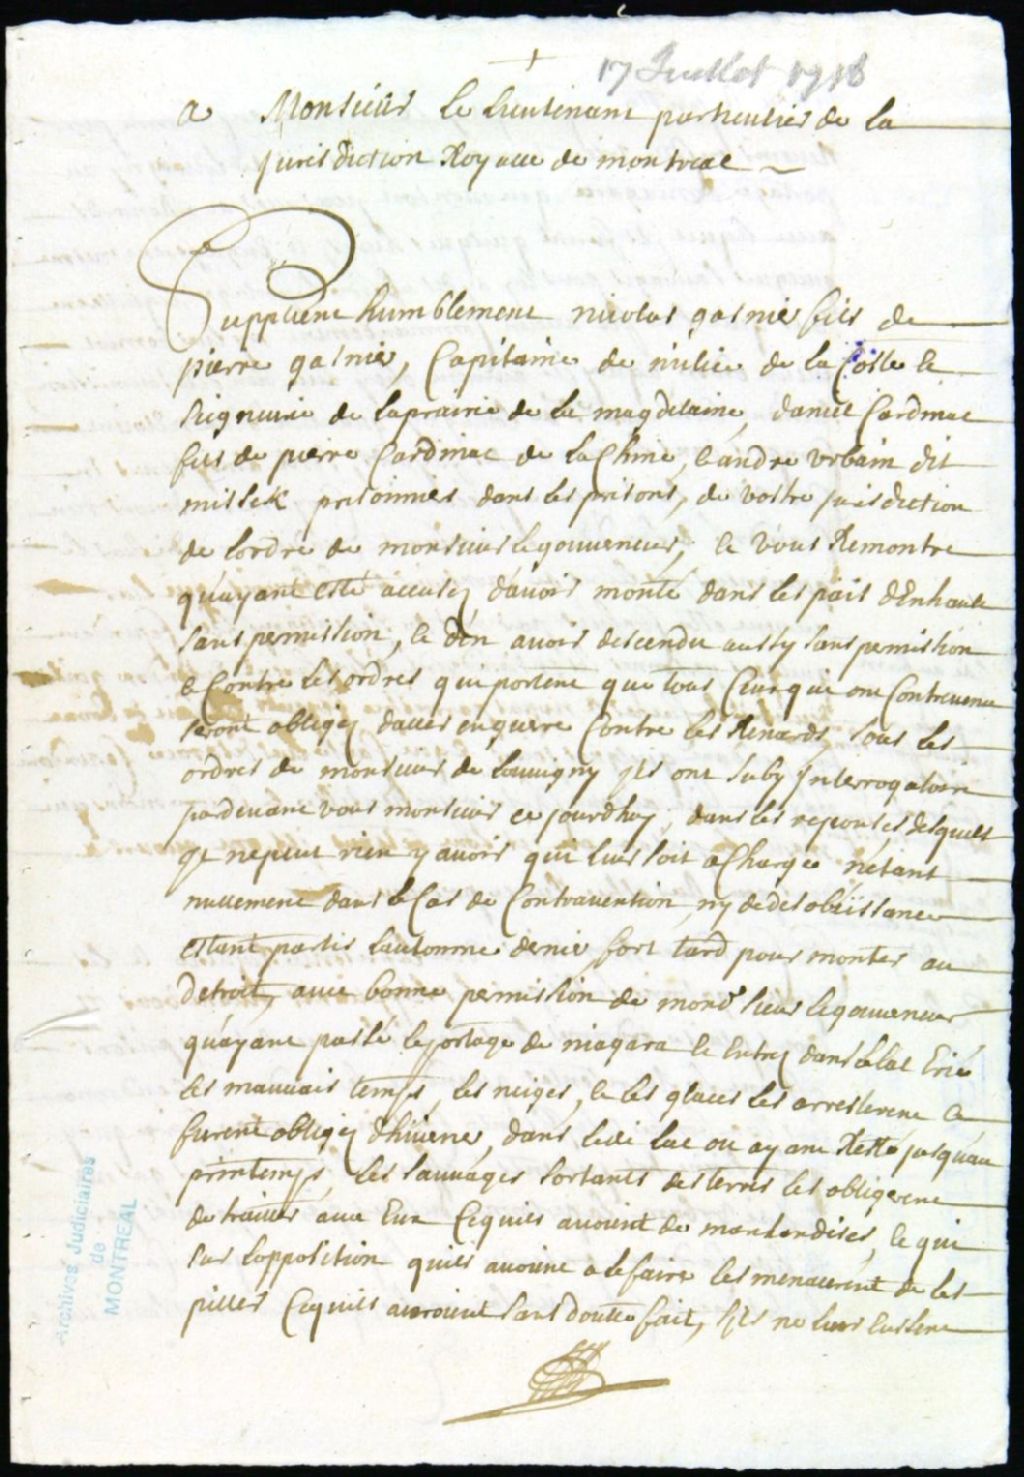 17 Juillet 1716
a Monsieur le lieutenant particulier de la
jurisdiction Royalle de montreal
Supplient humblement nicolas gasnier fils de
pierre gasnier, Capitaine de milice de la Coste &
seigneurie de laprairie de la magdelaine, daniel Cardinal
fils de pierre Cardinal de laChine, & andre vrbain dit
prisonniers dans les prisons, de vostre jurisdiction
de lordre de monsieur le gouverneur, & vous Remontre
qu'ayant esté accusez d'avoir monté dans les païs d'Enhault
sans permission, & d'en avoir descendu aussy sans permission
& Contre les ordres qui portent que tous Ceux qui ont Contrevenu
seront obligez d'aller en guerre Contre les Renards, sous les
ordres de monsieur de Louvigny jls ont suby Interrogatoire
pardevant vous monsieur ce jourdhuy, dans les reponses desquels
jl ne peut rien y avoir qui leur soit a Charge n'étant
nullement dans le Cas de Contravention, ny de desobeïssance
estant partis lautomne denier fort tard pour monter au
detroit, avec bonne permission de mond.^t sieur le gouverneur
qu'ayant passé le portage de niagara & Entrez dans le lac Erié
les mauvais temps, les neiges, & les glaces les arresterent &
furent obligez d'hiverner, dans ledi lac ou ayant Resté jusqu'au
printemps, les sauvages sortants des terres les obligerent
de traitter avec Eux Cequils avoient de marchandises, & qui
sur l'opposition quils avoient a le faire les menacerent de les
piller Cequils auroient sans doutte fait, sjls ne leurs Eussent
Archives Judiciaires
de
MONTREAL